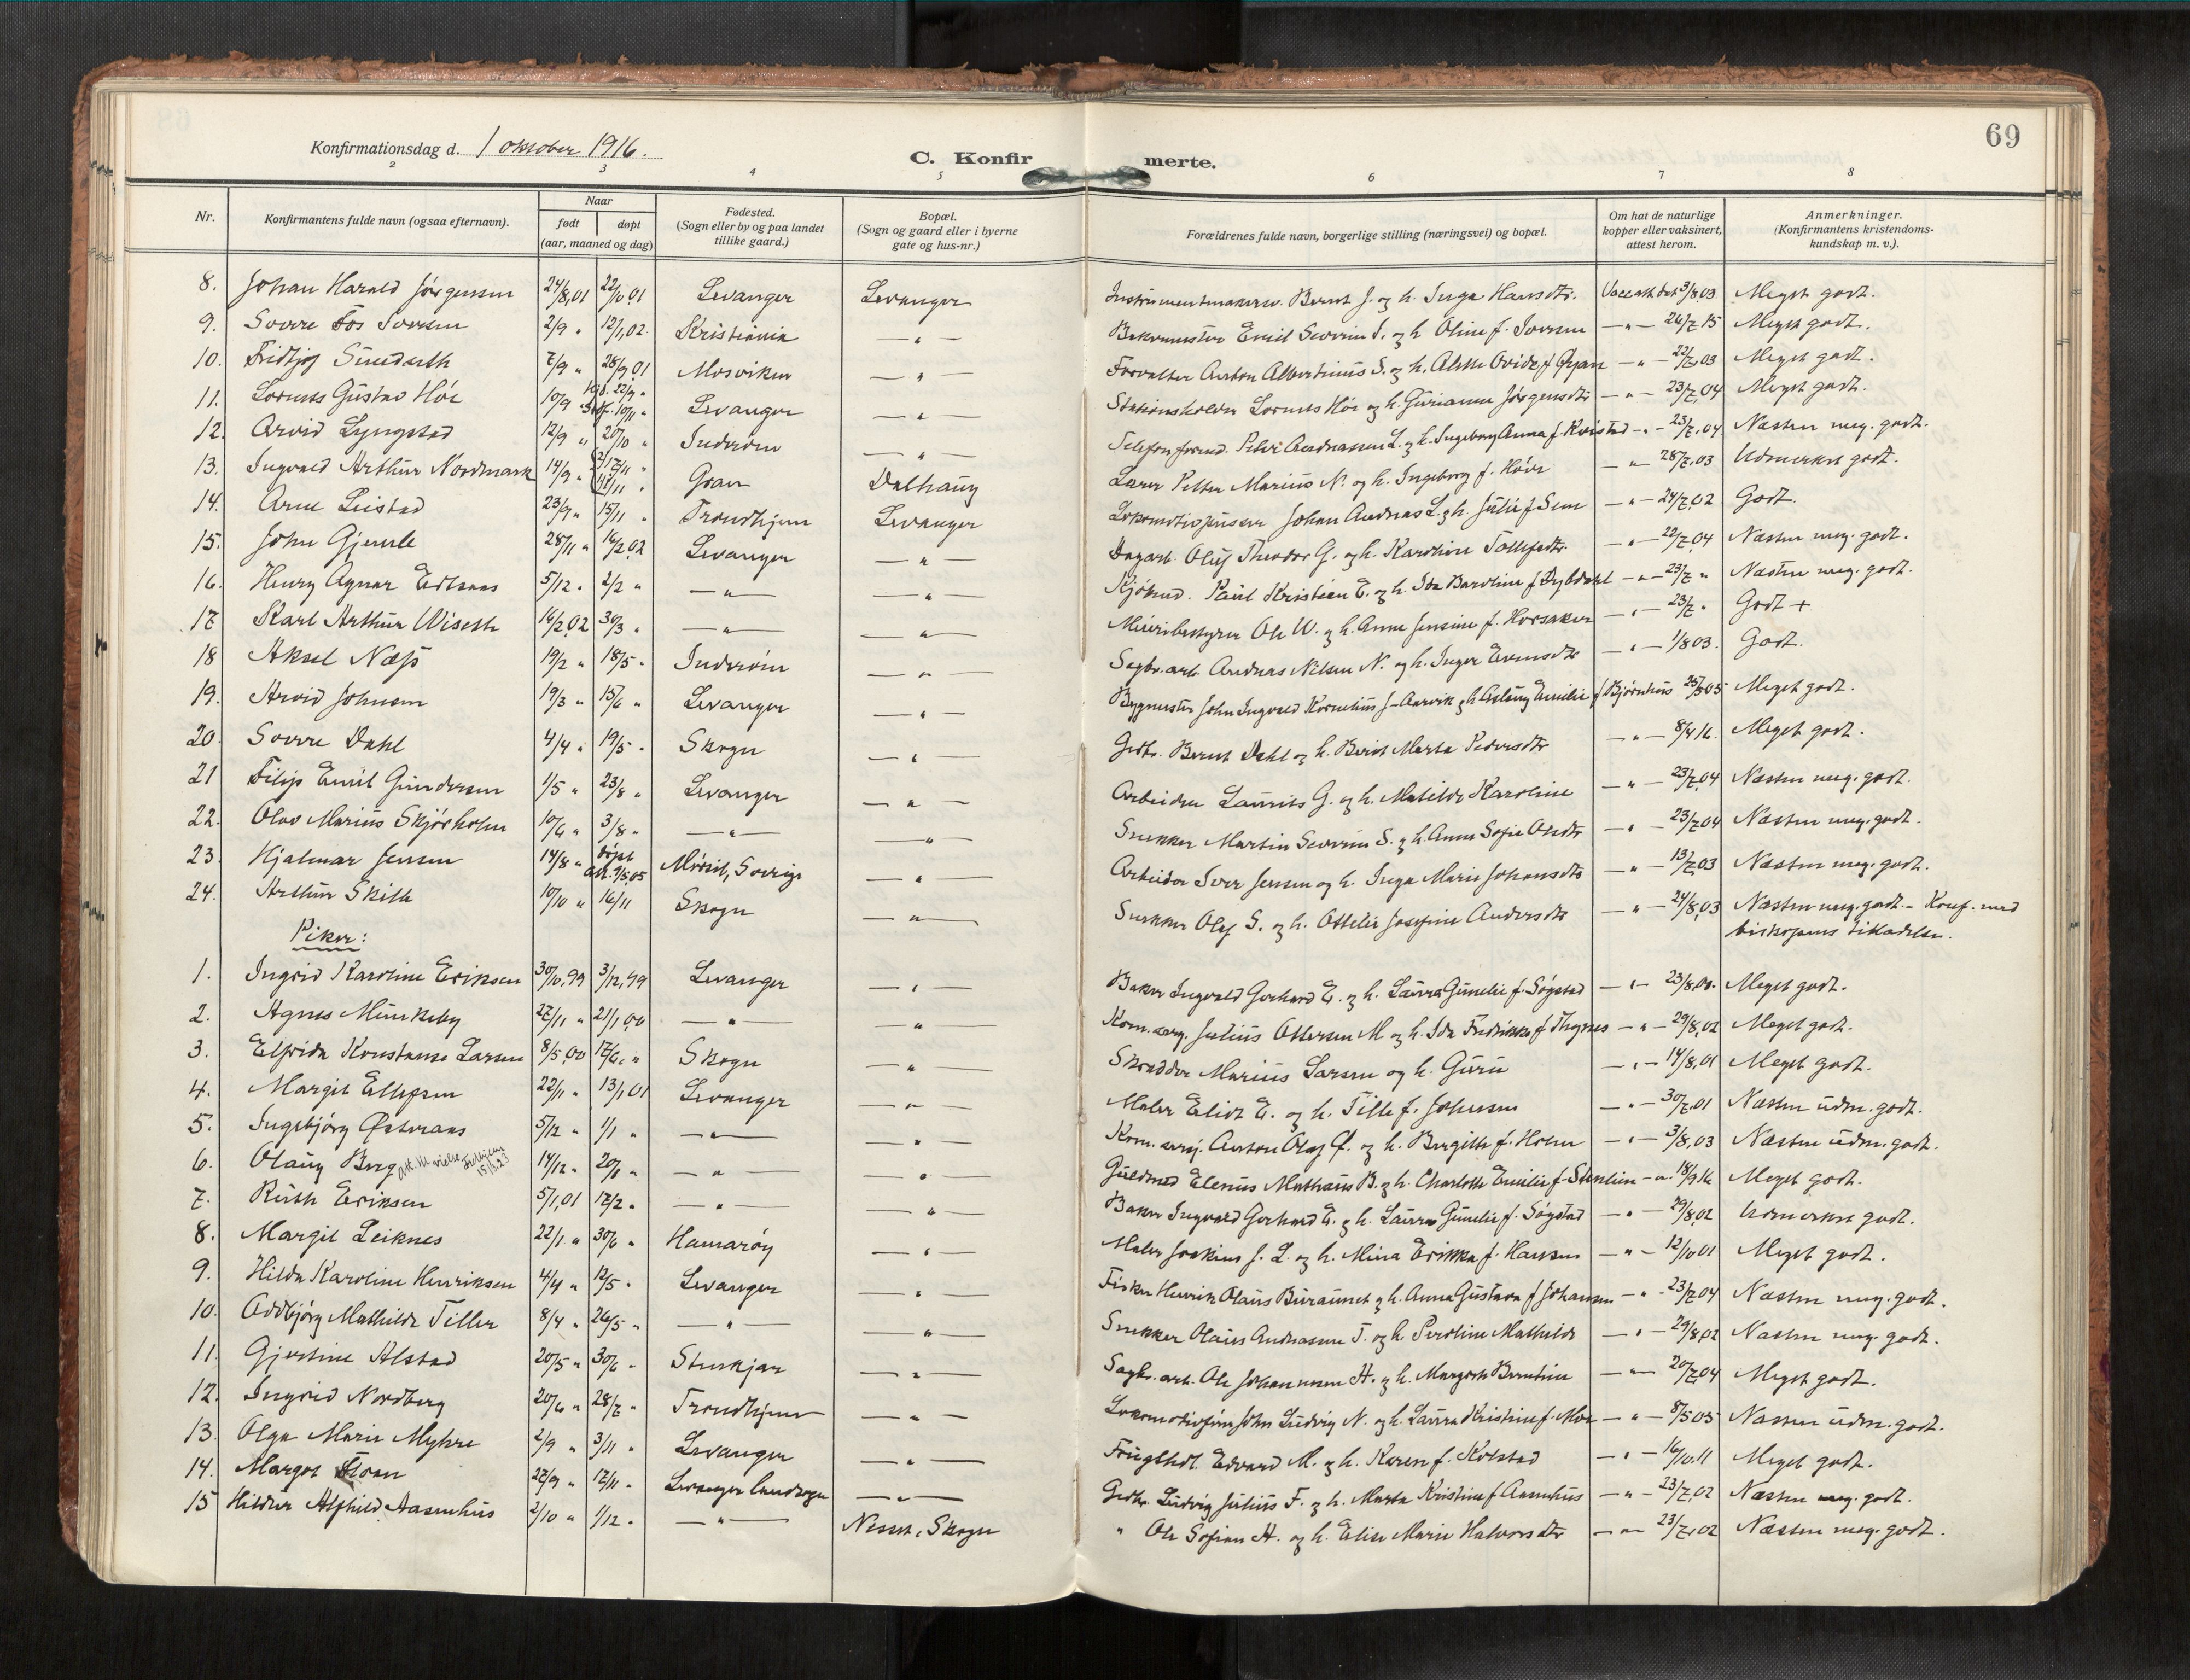 69
Konfirmationsdag d. 1 oktober 1916.
C. Konfirmerte.
2 3 4 5 6 7 8
Nr. Konfirmantens fulde navn (ogsaa efternavn). Naar født døpt (aar, maaned og dag) Fødested. (Sogn eller by og paa landet tillike gaard.) Bopæl. (Sogn og gaard eller i byerne gate og hus-nr.) Forældrenes fulde navn, borgerlige stilling (næringsvei) og bopæl. Om hat de naturlige kopper eller vaksinert, attest herom. Anmerkninger. (Konfirmantens kristendomskundskap m. v.).
8. Johan Harald Jørgensen 24/8,01 22/10 01 Levanger Levanger Instrumentmakersv. Bernt J. og h. Inga Hansdtr. Vacc.att. dat 3/8.03 Meget godt.
9. Sverre Fos Iversen 2/9 " 12/1,02. Kristiania — " — Bakermester Emil Severin I. og h. Oline f. Iversen — " — 26/7 15 Meget godt.
10. Fridtjof Sundseth 7/9 " 28/9 01 Mosviken — " — Forvalter Anton Albertinius S. og h. Alette Ovidie f. Qvam — " — 22/7.03 Meget godt.
11. Lornts Gustav Höe 10/9 " 10/11 " Levanger — " — Stationsholder Lornts Höe og h. Gurianna Jørgensdtr — " — 23/7,04 Meget godt.
12. Arvid Lyngstad 12/9 " 20/10 " Inderøen — " — Telefonformd. Peter Andreassen L. og h. Ingeborg Anna f. Kvistad — " — 23/7.04 Næsten meg. godt.
13. Ingvald Arthur Nordmark 14/9 " 17/11 " Gran Dalhaug Lærer Petter Marius N. og h. Ingeborg f. Høve — " — 28/7.03 Udmerket godt.
14. Arne Leistad 23/9 " 15/11 " Trondhjem Levanger Lokomotivpusser Johan Andreas L. og h. Julie f. Sem — " — 24/7.02 Godt.
15. John Gjemle 28/11 " 16/2 02 Levanger — " — Dagarb. Oluf Theodor G. og h. Karoline Tollefsdtr. — " — 22/7.04 Næsten meg. godt.
16. Henry Agnar Edtsaas 5/12 " 2/2 " — " — — " — Kjøbmd. Paul Kristian E. og h. Ida Baroline f. Dybdahl — " — 23/7 " Næsten meg. godt.
17 Karl Arthur Wiseth 16/2,02 30/3 " — " — — " — Meieribestyrer Ole W. og h. Anne Jensine f. Horsaker — " — 23/7 " Godt +
18 Aksel Næss 19/2 " 18/5 " Inderøen — " — Sagbr.arb. Andreas Nilsen N. og h. Inger Evensdtr — " — 1/8 03. Godt.
19. Arvid Johnsen 19/3 " 15/6 " Levanger — " — Bygmester John Ingvald Kornelius J—Aarvik og h. Aslaug Emilie f. Bjørnhus 25/5 05 Meget godt.
20. Sverre Dahl 4/4 " 19/5 " Skogn — " — Grdbr. Bernt Dahl og h. Berit Marta Pedersdtr — " — 8/4 16. Meget godt.
21 Filip Emil Gundersen 1/5 " 23/8 " Levanger — " — Arbeider Laurits G. og h. Matilde Karoline — " — 23/7,04 Næsten meg. godt.
22. Olav Marius Skjørholm 10/6 " 3/8 " — " — — " — Snekker Martin Severin S. og h. Anna Sofie Olsdtr — " — 23/7 04 Næsten meg. godt.
23. Hjalmar Jensen 14/8 " døpt att. 9/5,05 Mörsil, Sverige — " — Arbeider Iver Jensen og h. Inga Marie Johansdtr — " — 13/7.03 Næsten meg. godt.
24. Arthur Skille 10/10 " 16/11 Skogn — " — Snekker Olaf S. og h. Ottelie Josefine Andersdtr — " — 24/8,03 Næsten meg. godt. – Konf. med biskopens tilladelse.
Piker:
1. Ingrid Karoline Eriksen 30/10,99 3/12,99 Levanger — " — Baker Ingvald Gerhard E. og h. Laura Gunelie f. Søgstad — " — 23/8,00. Meget godt.
2. Agnes Munkeby 27/11 " 21/1,00 — " — — " — Kom.arb. Julius Ottersen M. og h. Ida Fredrikke f. Thynes — " — 29/8,02 Meget godt.
3. Elfrida Konstanse Larsen 8/5,00 17/6. " Skogn — " — Skrædder Marius Larsen og h. Guru — " — 14/8,01 Meget godt.
4. Margit Ellefsen 22/11 " 13/1,01 Levanger — " — Maler Eliot E. og h. Tille f. Johnsen — " — 30/7.01 Næsten udm. godt.
5. Ingebjörg Østeraas 5/12 " 1/1 " — " — — " — Kom. arbj. Anton Olaf Ø. og h. Bergitte f. Holm — " — 3/8,03 Næsten udm. godt.
6. Olaug Berg att. til vielse 15/1.23 14/12 " 20/1 " — " — — " — Guldsmed Elenus Mathæus B. og h. Charlotte Emilie f. Stenlien — " — 18/9 16 Meget godt.
7. Ruth Eriksen 5/1,01 17/2 " — " — — " — Baker Ingvald Gerhard E. og h. Laura Gunelie f. Søgstad — " — 29/8,02 Udmerket godt.
8. Margit Leiknes 22/1 " 30/6 " Hamarøy — " — Maler Joakim J. L. og h. Mina Erikka f. Hansen — " — 12/10 01 Meget godt.
9. Hilda Karoline Henriksen 4/4 " 12/5 " Levanger — " — Fisker Henrik Olaus Buraunet og h. Anna Gustava f. Johansen — " — 23/7 04 Næsten meg. godt.
10. Oddbjörg Mathilde Tiller 8/4 " 26/5 " — " — — " — Snekker Olaus Andreassen T. og h. Peroline Mathilde — " — 29/8,02 Næsten meg. godt.
11. Gjertine Alstad 20/5 " 30/6 " Stenkjær — " — Sagbr. arb. Ole Johannesen A. og h. Margrete Berntine — " — 20/7,04 Meget godt.
12. Ingrid Nordberg 20/6 " 28/7 " Trondhjem — " — Lokomotivfører John Ludvig N. og h. Laura Kristine f. Moe — " — 8/5 05 Næsten udm. godt.
13. Olga Marie Myhre 2/9 " 3/11 " Levanger — " — Edvard M. og h. Karen f. Kolstad — " — 16/10.11 Meget godt.
14. Margot Floan 27/9 " 17/11 " Levanger landsogn — " — Grdbr. Ludvig Julius F. og h. Marta Kristine f. Aasenhus — " — 23/7,02 Næsten meg. godt.
15 Hildur Alfhild Aasenhus 2/10 " 1/12 " — " — Nesset, Skogn " Ole Sofian A. og h. Elise Marie Halvorsdtr — " — 23/7,02 Næsten meg. godt.